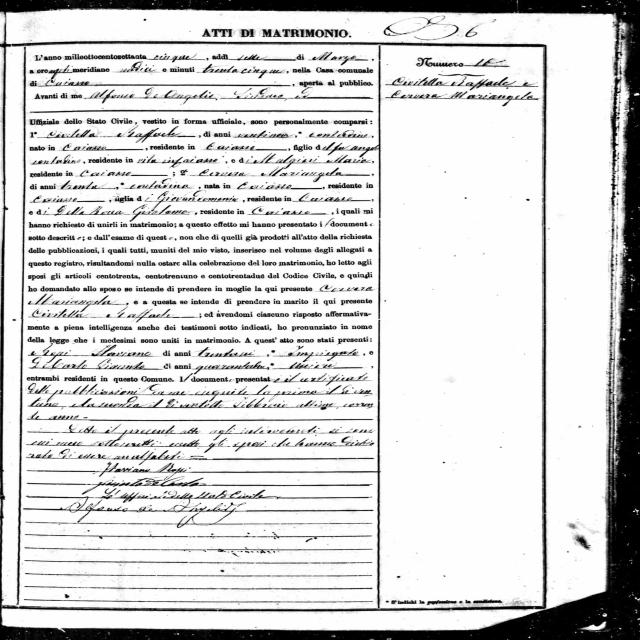 ATTI DI MATRIMONIO.
6
L'anno milleottocentosettanta cinque, addì sette di Marzo,
a ore meridiane undici e minuti trenta cinque, nella Casa comunale
di Caiazzo, aperta al pubblico.
Avanti di me Alfonso De Angelis
Uffiziale dello Stato Civile, vestito in forma uffiziale, sono personalmente comparsi:
1° Civitella Raffaele, di anni ventinove, * contadino,
nato in Caiazzo, residente in Caiazzo, figlio del fu Angelo
contadino, residente in vita in Caiazzo, e di Malgieri Maria
residente in Caiazzo; 2° Cervera Mariangela
di anni trenta, * contadina, nata in Caiazzo, residente in
Caiazzo, figlia di Giovandomenico, residente in Caiazzo
e di Della Rocca Girolama, residente in Caiazzo, i quali mi
hanno richiesto di unirli in matrimonio; a questo effetto mi hanno presentato i documenti
sotto descritti; e dall'esame di questi, non che di quelli già prodotti all'atto della richiesta
delle pubblicazioni, i quali tutti, muniti del mio visto, inserisco nel volume degli allegati a
questo registro, risultandomi nulla ostare alla celebrazione del loro matrimonio, ho letto agli
sposi gli articoli centotrenta, centotrentuno e centotrentadue del Codice Civile, e quindi
ho domandato allo sposo se intende di prendere in moglie la qui presente Cervera
Mariangela, e a questa se intende di prendere in marito il qui presente
Civitella Raffaele; ed avendomi ciascuno risposto affermativamente
a piena intelligenza anche dei testimoni sotto indicati, ho pronunziato in nome
della legge che i medesimi sono uniti in matrimonio. A quest'atto sono stati presenti:
Rossi Flaviano di anni * Impiegato, e
De Carlo di anni quarantotto, *
entrambi residenti in questo Comune. I documenti presentati e il certificato
delle pubblicazioni da me eseguite la prima il
e la seconda il Febbraio ultimo, corrente
anno.
Letto il presente atto agli intervenuti si sono
con me sottoscritti eccetto gli sposi che hanno dichia
rato di essere analfabeti
Flaviano Rossi
De Carlo
L'Ufficiale dello Stato Civile
Alfonso De Angelis
Numero 16
Civitella Raffaele e
Cervera Mariangela
* S'indichi la professione o la condizione.